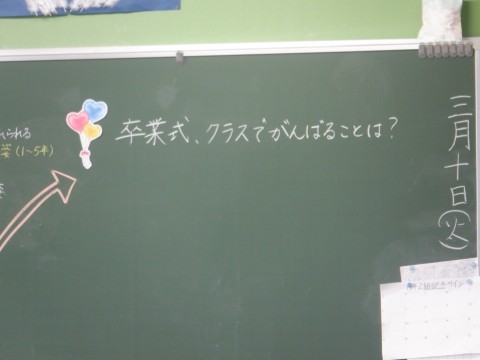 卒業式、クラスでがんばることは?
三月十日(火)
られる
姿(1~5年)